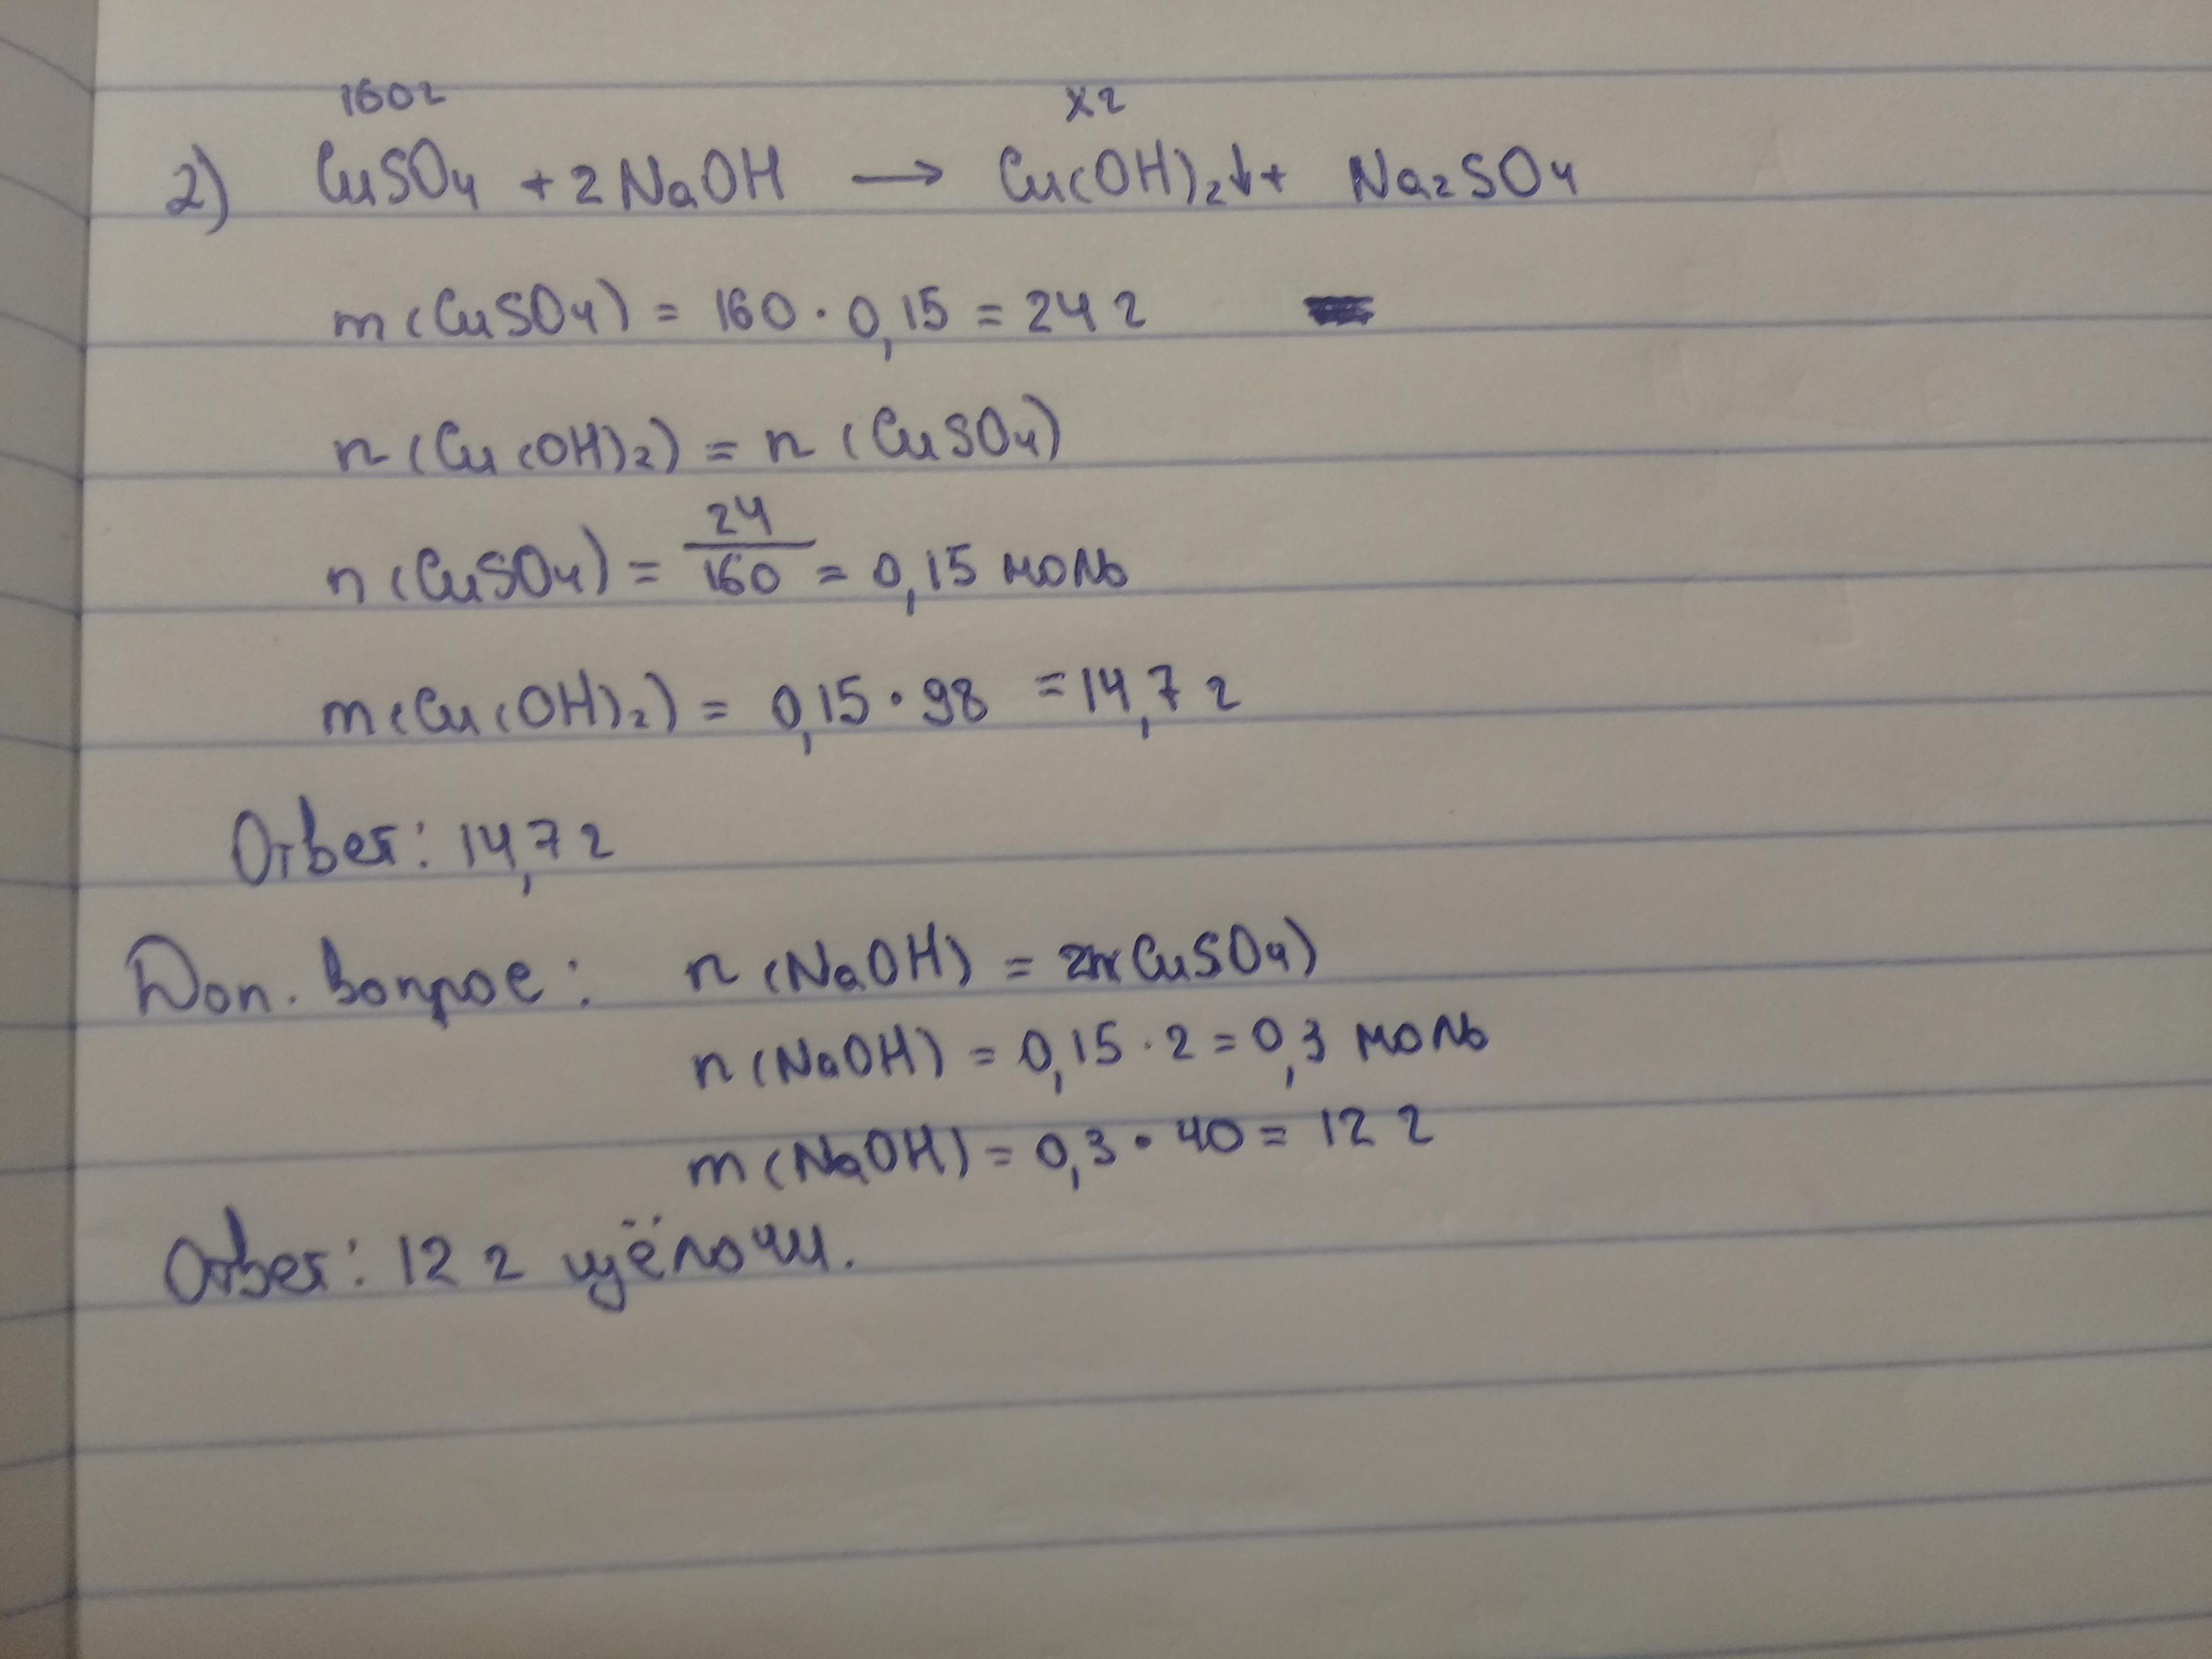 160г х г
2) CuSO4 + 2NaOH → Cu(OH)2↓ + Na2SO4
m(CuSO4) = 160 · 0,15 = 24 г
n(Cu(OH)2) = n(CuSO4)
n(CuSO4) = 24/160 = 0,15 моль
m(Cu(OH)2) = 0,15 · 98 = 14,7 г
Ответ: 14,7 г
Доп. вопрос: n(NaOH) = 2n(CuSO4)
n(NaOH) = 0,15 · 2 = 0,3 моль
m(NaOH) = 0,3 · 40 = 12 г
Ответ: 12 г щёлочи.